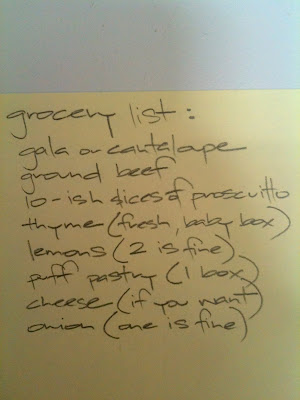 grocery list:
gala or cantaloupe
ground beef
10-ish slices of proscuitto
thyme (fresh, baby box)
lemons (2 is fine)
puff pastry (1 box)
cheese (if you want)
onion (one is fine)